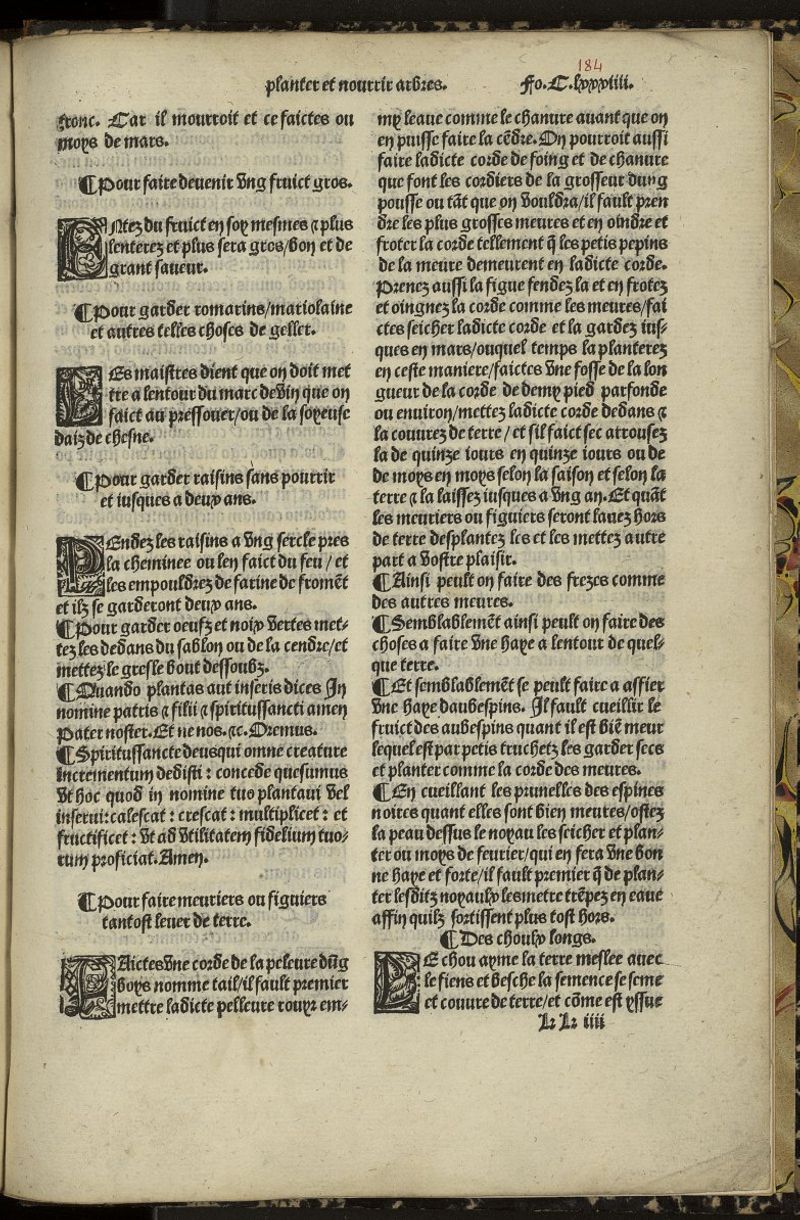 184
planter et nourrir arbres. Fo.C.lxxxiiii.
tronc. Car il mourroit et ce faictes ou
moys de mars.
¶Pour faire devenir vng fruict gros.
ENtez du fruict en soy mesmes ⁊ plus
lenterez et plus sera gros/bon et de
grant saueur.
¶Pour garder romarins/mariolaine
et autres telles choses de geller.
LEs maistres dient que on doit met
tre a lentour du marc de vin que on
faict au pressouer/ou de la soyeuse
daiz de chesne.
¶Pour garder raisins sans pourrir
et iusques a deux ans.
PEndez les raisins a vng sercle pres
la cheminee ou len faict du feu / et
les empouldrez de farine de fromēt
et ilz se garderont deux ans.
¶Pour garder oeufz et noix vertes met-
tez les dedans du sablon ou de la cendre/et
mettez le gresle bout dessoubz.
¶Quando plantas aut inseris dices In
nomine patris ⁊ filii ⁊ spiritussancti amen
Pater noster. Et ne nos. ⁊c. Oremus.
¶Spiritussancte deus qui omne creature
incrementum dedisti : concede quesumus
vt hoc quod in nomine tuo plantaui vel
inserui: calescat : crescat : multiplicet : et
fructificet : vt ad vtilitatem fidelium tuo-
rum proficiat. Amen.
¶Pour faire meuriers ou figuiers
tantost leuer de terre.
FAictes vne corde de la peleure dūg
boys nomme tail/il fault premier
mettre ladicte pelleure rouyr em-
my leaue comme le chanure auant que on
en puisse faire la cēdre. On pourroit aussi
faire ladicte corde de foing et de chanure
que font les cordiers de la grosseur dung
pousse ou tāt que on vouldra/il fault pren
dre les plus grosses meures et en oindre et
froter la corde tellement q̄ les petis pepins
de la meure demeurent en ladicte corde.
Prenez aussi la figue fendez la et en frotez
et oingnez la corde comme les meures/fai
ctes seicher ladicte corde et la gardez ius-
ques en mars/ouquel temps la planterez
en ceste maniere/faictes vne fosse de la lon
gueur de la corde de demy pied parfonde
ou environ/mettez ladicte corde dedans ⁊
la couurez de terre / et sil faict sec arrousez
la de quinze iours en quinze iours ou de
de moys en moys selon la saison et selon la
terre ⁊ la laissez iusques a vng an. Et quāt
les meuriers ou figuiers seront lauez hors
de terre desplantez les et les mettez autre
part a vostre plaisir.
¶Ainsi peult on faire des frezes comme
des autres meures.
¶Semblablemēt ainsi peult on faire des
choses a faire vne haye a lentour de quel-
que terre.
¶Et semblablemēt se peult faire a affier
vne haye daubespins. Il fault cueillir le
fruict des aubespins quant il est biē meur
lequel est par petis truchetz les garder secs
et planter comme la corde des meures.
¶En cueillant les prunelles des espines
noires quant elles sont bien meures/ostez
la peau dessus le noyau les seicher et plan-
ter ou moys de feurier/qui en fera vne bon
ne haye et forte/il fault premier q̄ de plan-
ter lesditz noyaulx les metre trēpez en eaue
affin quilz sortissent plus tost hors.
¶Des choulx longs.
LE chou ayme la terre meslee auec
le fiens et besche la semence se seme
et couure de terre/et cōme est yssue
Lr Lr iiii